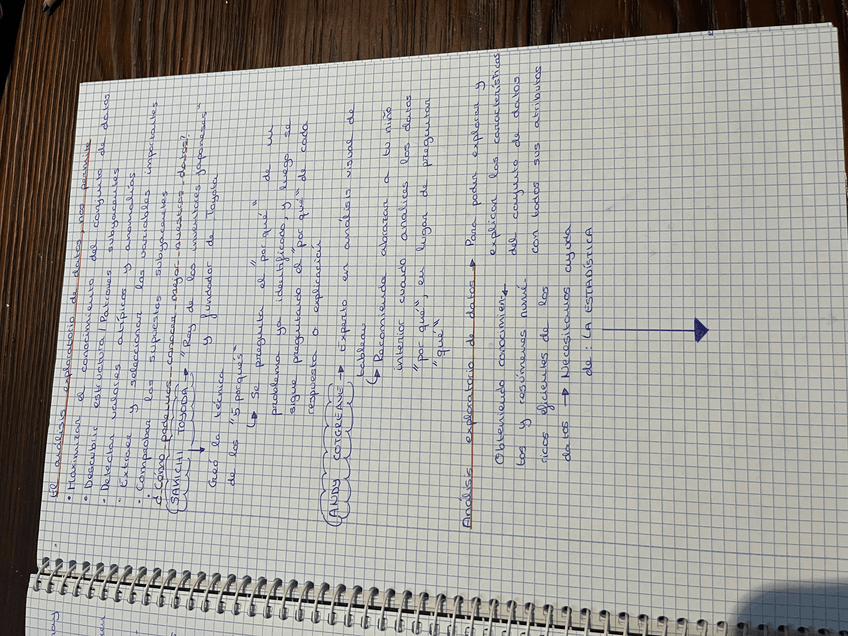 El análisis exploratorio de datos, nos permite
· Maximizar el conocimiento del conjunto de datos
· Descubrir estructura / Patrones subyacentes
· Detectar valores atípicos y anomalías
· Extraer y seleccionar las variables importantes
· Comprobar los supuestos subyacentes
¿Cómo podemos conocer mejor nuestros datos?
SAKICHI TOYODA → "Rey de los inventores japoneses"
y fundador de Toyota
Creó la técnica
de los "5 porqués"
↳ Se pregunta el "por qué" de un
problema ya identificado, y luego se
sigue preguntando el "por qué" de cada
respuesta o explicación
ANDY COTGREAVE → Experto en análisis visual de
tableau
↳ Recomienda abrazar a tu niño
interior cuando analices los datos
"por qué", en lugar de preguntar
"qué"
Análisis exploratorio de datos → Para poder explorar y
explicar las características
del conjunto de datos
con todos sus atributos
Obteniendo conocimien-
tos y resúmenes numé-
ricos eficientes de los
datos → Necesitamos ayuda
de: LA ESTADÍSTICA